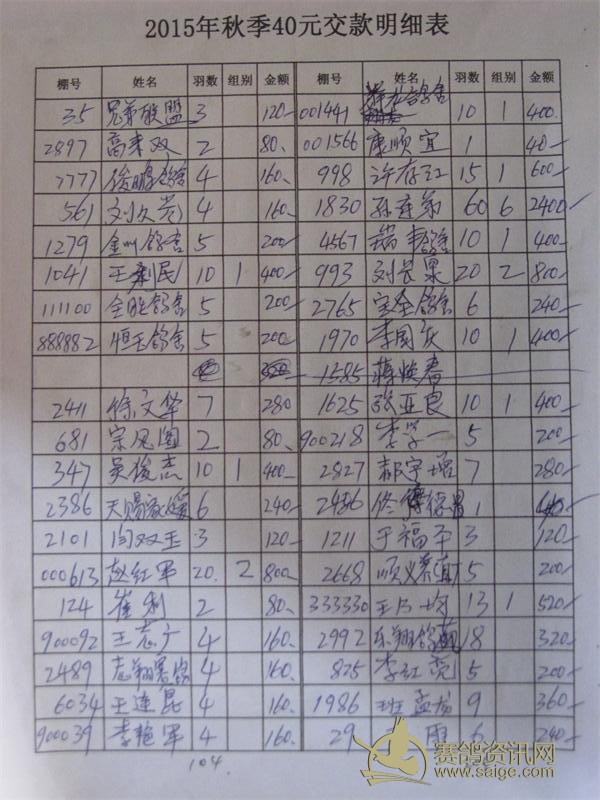 2015年秋季40元交款明细表
棚号 姓名 羽数 组别 金额 棚号 姓名 羽数 组别 金额
35 兄弟联盟 3 120 001441 10 1 400
2897 高来双 2 80 001566 康顺宜 1 40
7777 俊鹏鸽舍 4 160 998 许存红 15 1 600
561 刘久贵 4 160 1830 孙连弟 60 6 2400
1279 金州鸽舍 5 200 4567 瑞丰鸽舍 10 1 400
1041 王利民 10 1 400 993 刘长果 20 2 800
111100 全胜鸽舍 5 200 2765 宝全鸽舍 6 240
888882 恒玉鸽舍 5 200 1970 李国庆 10 1 400
1585 蒋焕春
2411 徐文华 7 280 1625 张亚良 10 1 400
681 宗凤阁 2 80 900218 李学一 5 200
347 吴俊杰 10 1 400 2827 郝宇增 7 280
2386 天赐 6 240 2486 1
2101 闫双玉 3 120 1211 于福平 3 120
000613 赵红军 20 2 800 2668 顺义 5 200
124 崔利 2 80 333330 13 1 520
900092 王志广 4 160 2992 乐翔鸽 8 320
2489 志翔 4 160 875 李红亮 5 200
6034 王连昆 4 160 1986 班孟龙 9 360
900039 李艳军 4 160 29 雨 6 240
104
赛鸽资讯网
www.saige.com